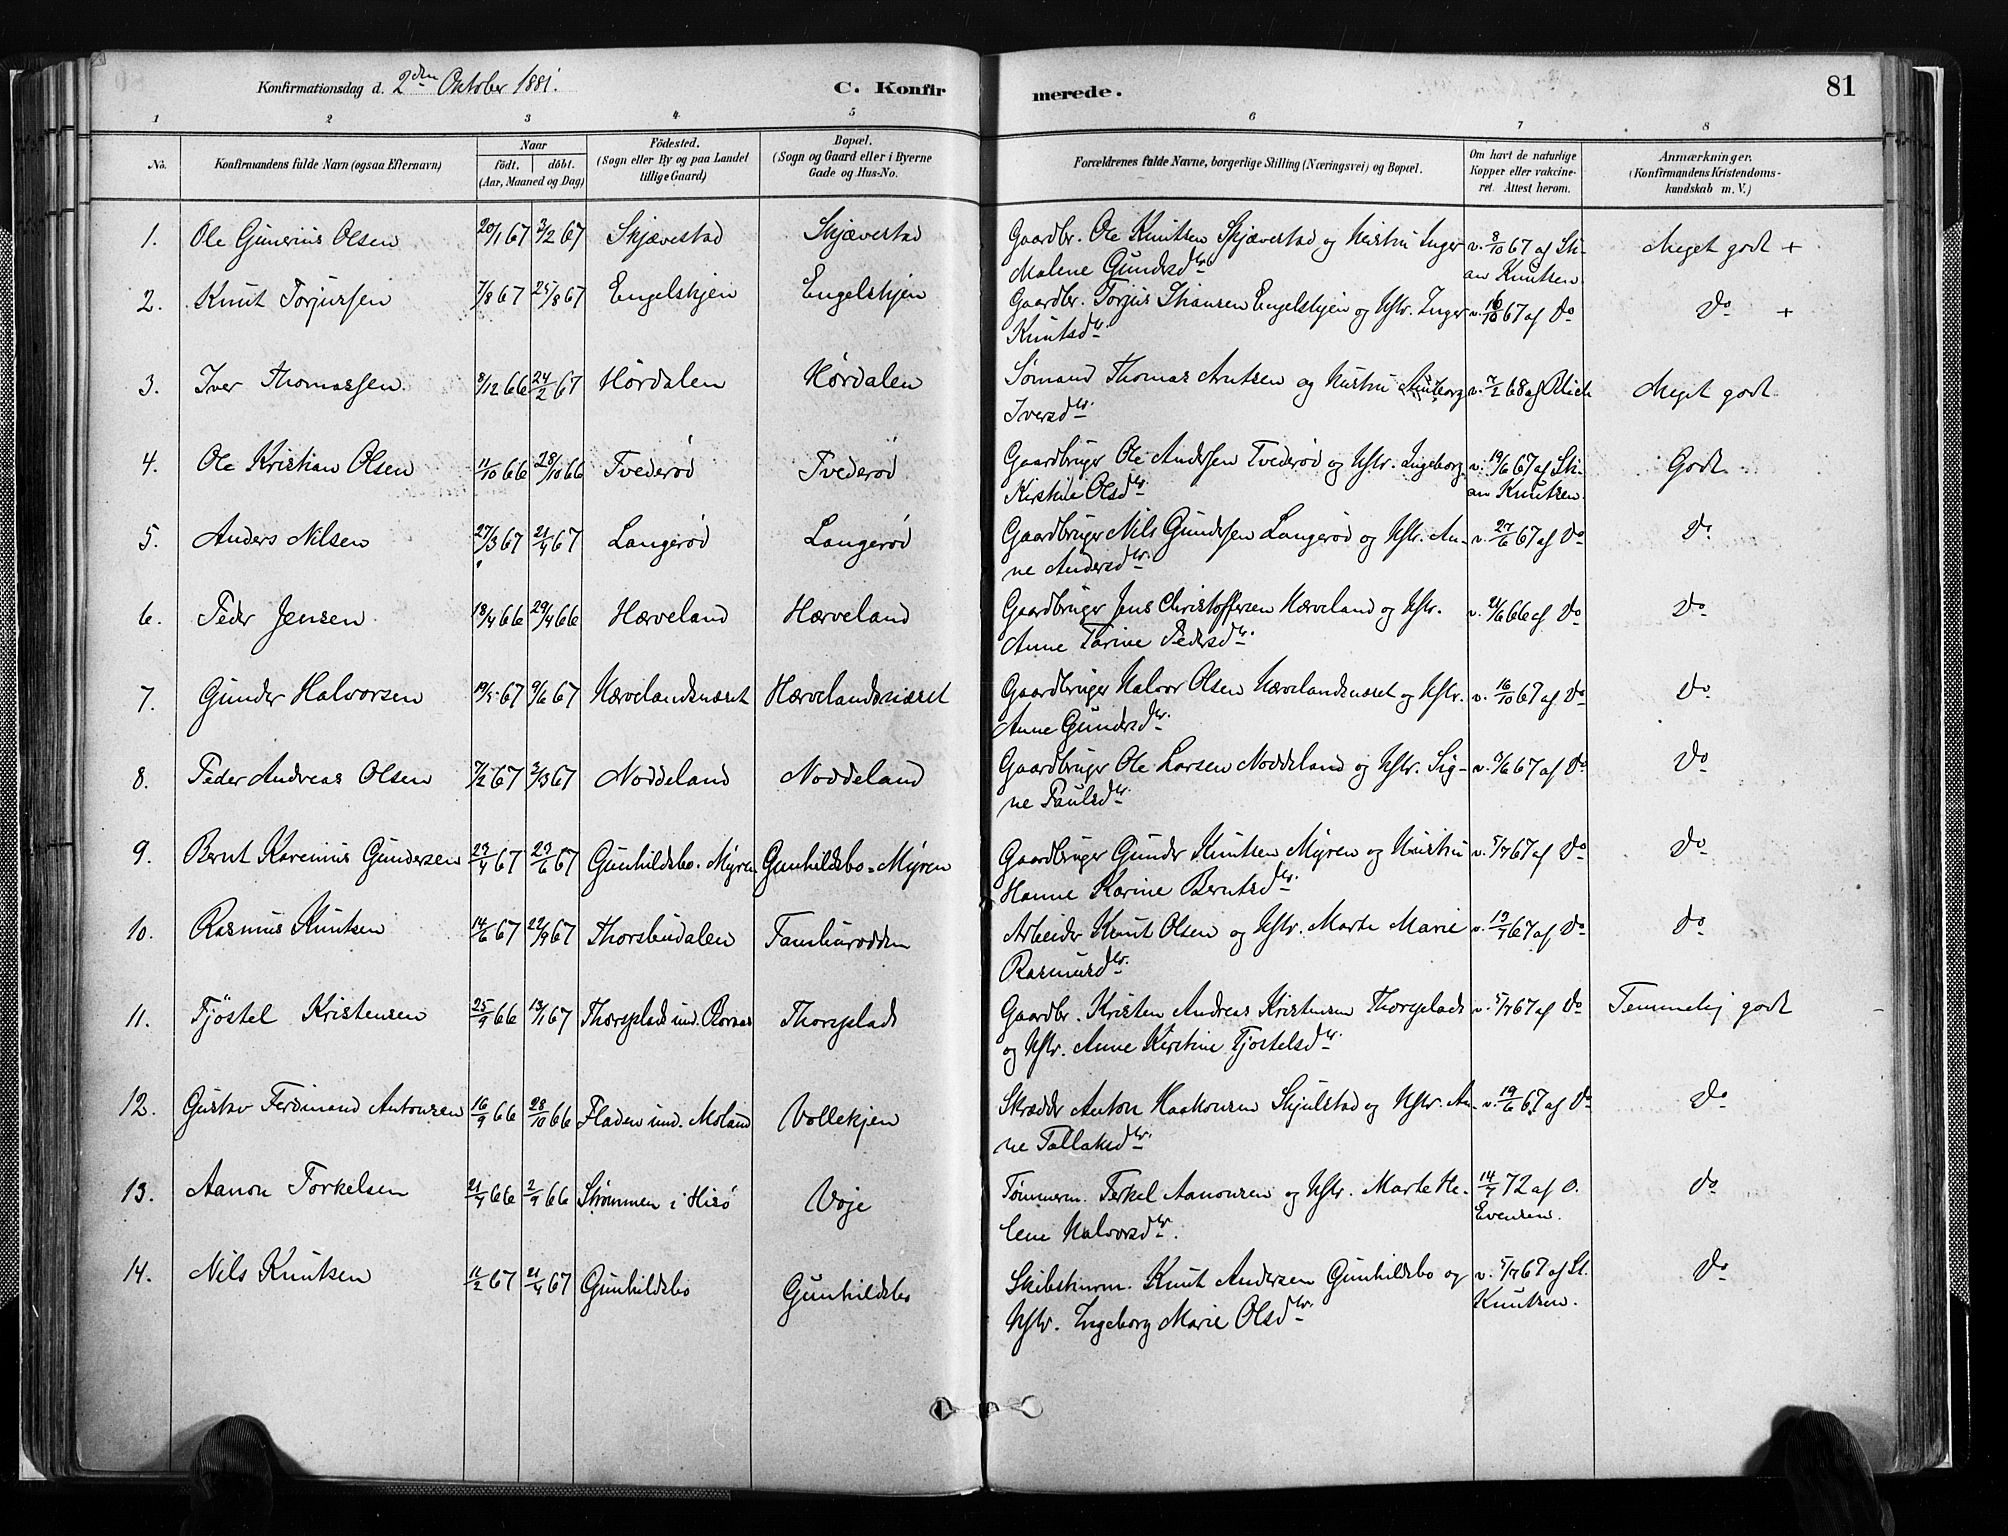 Konfirmationsdag d. 2den Oktober 1881.
C. Konfir
merede.
81
1 2 3 4. 5 6 7 8
No.
Konfirmandens fulde Navn (ogsaa Efternavn)
Naar
födt. döbt.
(Aar, Maaned og Dag)
Födested.
(Sogn eller By og paa Landet
tillige Gaard)
Bopæl.
(Sogn og Gaard eller i Byerne
Gade og Hus-No.
Forældrenes fulde Navne, borgerlige Stilling (Næringsvei) og Bopæl.
Om havt de naturlige
Kopper eller vakcine-
ret. Attest herom.
Anmærkninger.
(Konfirmandens Kristendoms-
kundskab m. V.)
1. Ole Gunerius Olsen 20/1 67 3/2 67 Skjævestad Skjævestad Gaardbr. Ole Knutsen Skjævestad og Hustru Inger v. 8/10 67 af Sti- Meget godt +
Malene Gundersdtr. an Knutsen.
2. Knut Torjussen 7/8 67 25/8 67 Engelskjen Engelskjen Gaardbr. Torjus Stiansen Engelskjen og Hstr. Inger v. 16/10 67 af Do Do +
Knutsdtr.
3. Iver Thomassen 8/12 66 24/2 67 Hördalen Hördalen Sømand Thomas Arntsen og Hustru v. 7/2 68 af Blich Meget godt
Iversdtr.
4. Ole Kristian Olsen 11/10 66 28/10 66 Tvederød Tvederød Gaardbruger Ole Andersen Tvederød og Hstr. Ingeborg v. 19/6 67 af Sti- Godt
Kirstine Olsdtr. an Knutsen.
5. Anders Nilsen 27/3 67 21/4 67 Langerød Langerød Gaardbruger Nils Gundersen Langerød og Hstr. An- v. 27/6 67 af Do Do
ne Andersdtr.
6. Peder Jensen 18/4 66 29/4 66 Hærveland Hærveland Gaardbruger Jens Christoffersen Hærveland og Hstr. v. 21/6 66 af Do Do
Anne Tarine Pedersdtr.
7. Gunder Halvorsen 19/5 67 9/6 67 Hærvelandsnæset Hærvelandsnæset Gaardbruger Halvor Olsen Hærvelandsnæset og Hstr. v. 16/10 67 af Do Do
Anne Gundersdtr.
8. Peder Andreas Olsen 7/2 67 3/3 67 Noddeland Noddeland Gaardbruger Ole Larsen Noddeland og Hstr. Sig- v. 5/6 67 af Do Do
ne Paulsdtr.
9. Bernt Karenius Gundersen 23/4 67 23/6 67 Gunhildsbo. Myren Gunhildsbo-Myren Gaardbruger Gunder Knutsen Myren og Hustru v. 5/7 67 af Do Do
Hanne Karine Berntsdtr.
10. Rasmus Knutsen 14/6 67 22/9 67 Thorsbudalen Arbeider Knut Olsen og Hstr. Marte Marie v. 19/7 67 af Do Do
Rasmusdtr.
11. Tjöstel Kristensen 25/9 66 13/1 67 Thorsplads und. Thorsplads Gaardbr. Kristen Andreas Kristensen Thorsplads v. 5/7 67 af Do Temmelig godt
og Hstr. Anne Kirstine Tjostelsdtr.
12. Gustav Ferdinand Antonsen 16/9 66 28/10 66 Fladen und. Moland Vollekjen Skrædder Anton Haakonsen Skjulstad og Hstr. An- v. 19/6 67 af Do Do
ne Tallaksdtr.
13. Aanon Torkelsen 21/7 66 2/9 66 Strömmen i Hisö Voje Tömmerm. Terkel Aanonsen og Hstr. Marte He- 14/7 72 af O. Do
lene Halvorsdtr. Evensen.
14. Nils Knutsen 11/2 67 21/4 67 Gunhildsbo Gunhildsbo Skibstimrm. Knut Andersen Gunhildsbo og v. 5/7 67 af St. Do
Hstr. Ingeborg Marie Olsdtr. Knutsen.